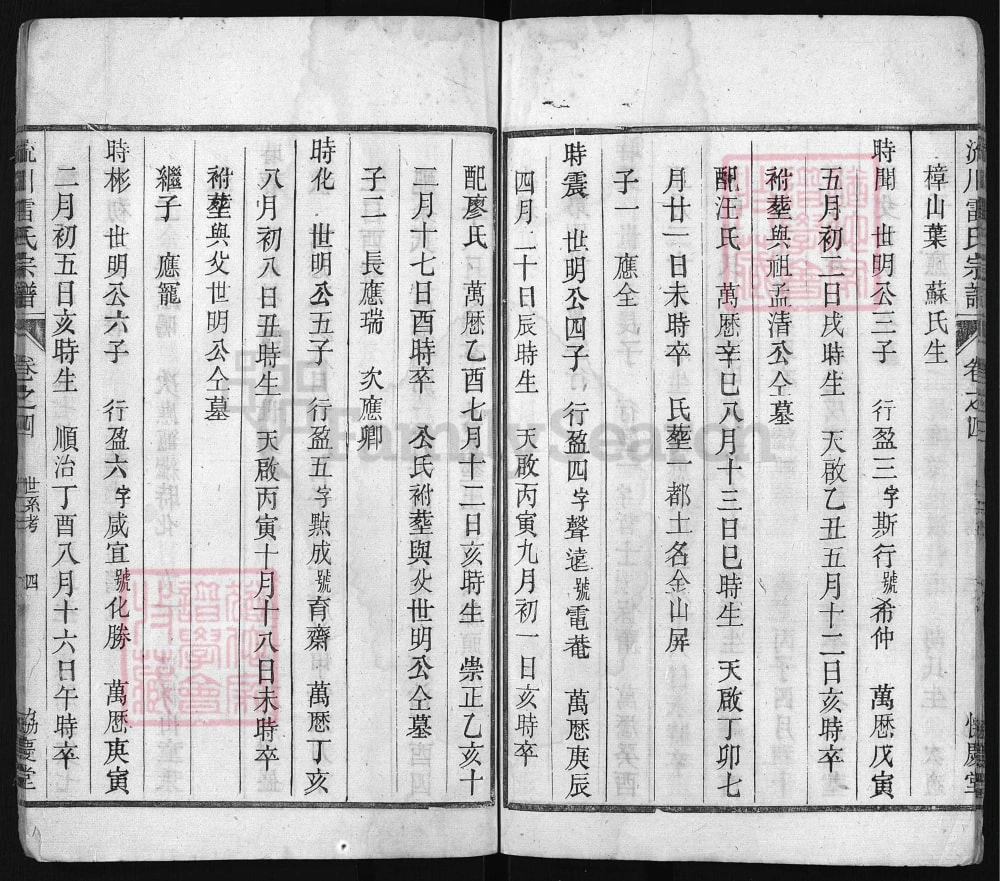 流川雷氏宗譜 卷之四
樟山葉 蘇氏生
時聞 世明公三子 行盈三字斯行號希仲 萬厯戊寅
五月初二日戌時生 天啟乙丑五月十二日亥時卒
祔塟與祖孟清公仝墓
配汪氏 萬厯辛巳八月十三日巳時生 天啟丁卯七
月廿一日未時卒 氏塟一都土名金山屏
子一 應全
時震 世明公四子 行盈四字聲遠號電菴 萬厯庚辰
四月二十日辰時生 天啟丙寅九月初一日亥時卒
配廖氏 萬厯乙酉七月十二日亥時生 崇正乙亥十
二月十七日酉時卒 公氏祔塟與父世明公仝墓
子二 長應瑞 次應卿
時化 世明公五子 行盈五字㸃成號育齋 萬厯丁亥
八月初八日丑時生 天啟丙寅十月十八日未時卒
祔塟與父世明公仝墓
繼子 應寵
時彬 世明公六子 行盈六字咸宜號化勝 萬厯庚寅
二月初五日亥時生 順治丁酉八月十六日午時卒
流川雷氏宗譜 卷之四 世系考 四 協慶堂
FamilySearch